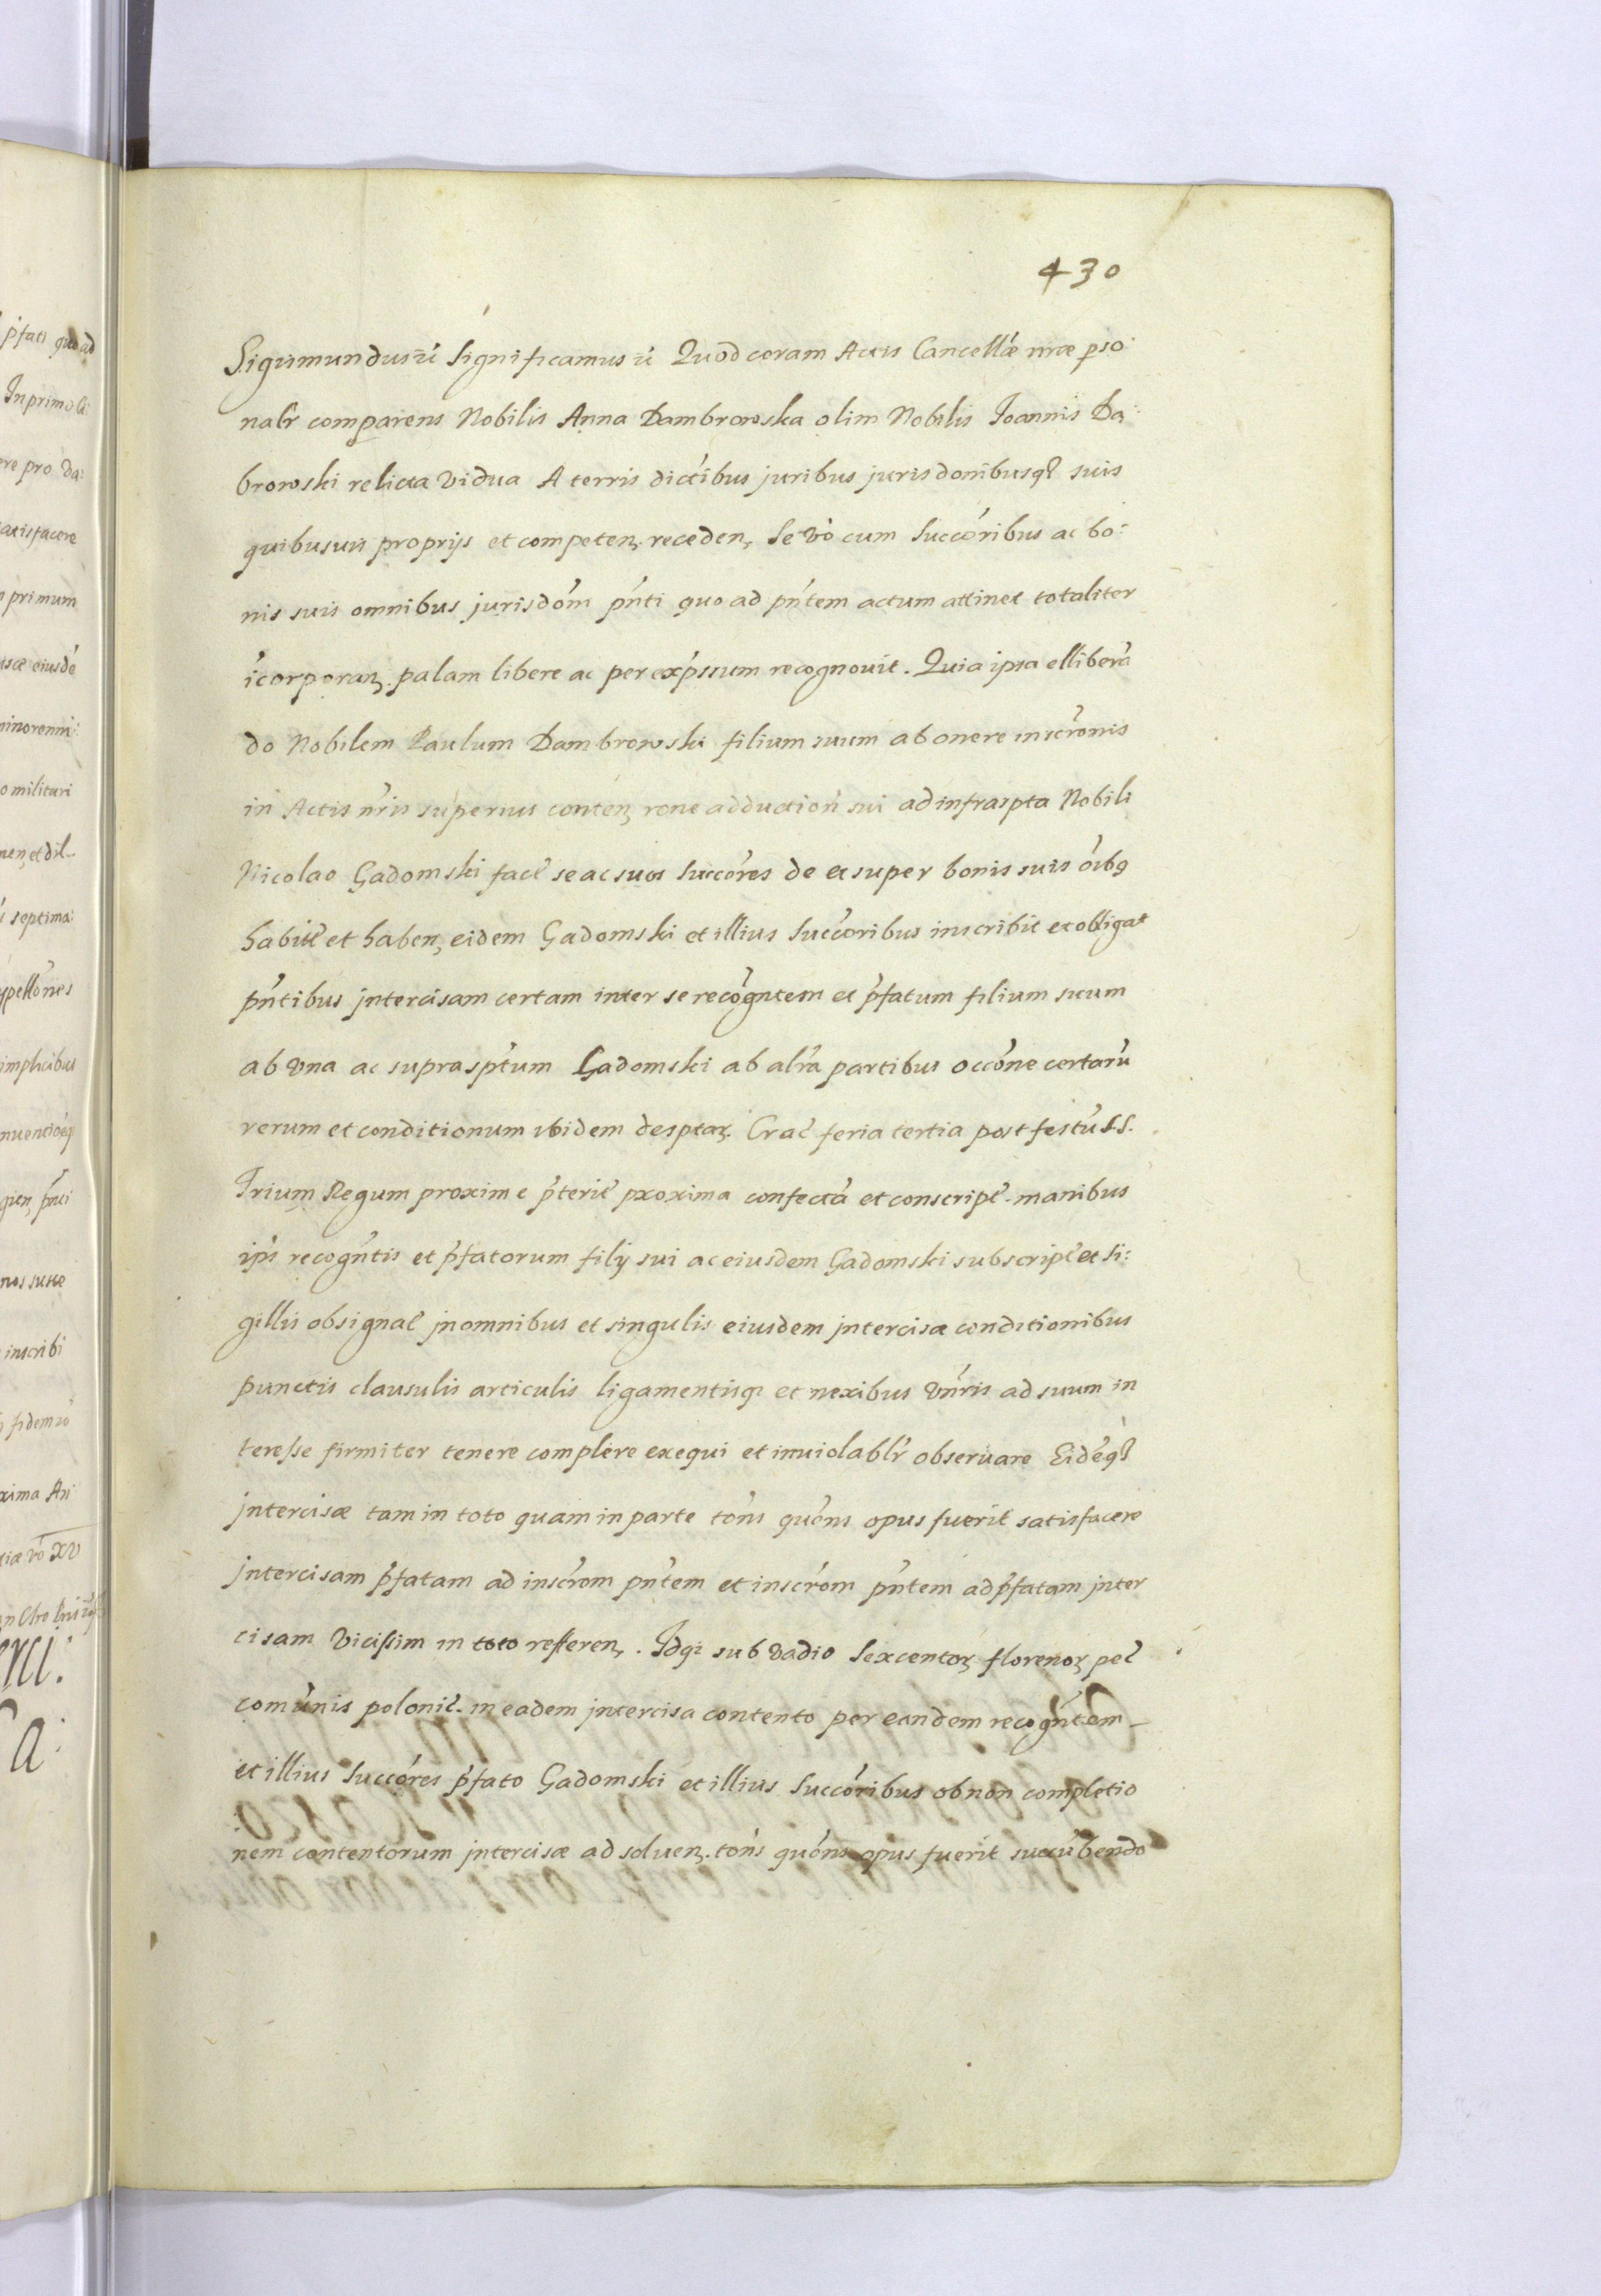 430
Sigismundus ū Significamus ū Quod coram Actis Cancellæ nræ pso:
nalr comparens Nobilis Anna Dambrowska olim Nobilis Joannis Da:
browski relicta vidua A terris dictibus juribus jurisdonibusq3 suis
quibusuis proprijs et competen, receden, Se vo cum Succoribus ac bo:
nis suis omnibus jurisdom pnti quo ad pntem actum attinet totaliter
icorporan, palam libere ac per expssum recognouit. Quia ipsa ellibera
do Nobilem Paulum Dambrowski filium suum ab onere inscronis
in Actis nris superius conten, rone adduction sui ad infraspta Nobili
Nicolao Gadomski fact se ac suos Succores de et super bonis suis oibq
habit et haben, eidem Gadomski et illius Succoribus inscribit et obligat
pntibus jntercisam certam inter se recogntem et pfatum filium suum
ab vna ac suprasptum Gadomski ab alra partibus occone certarū
rerum et conditionum ibidem desptar, Crac feria tertia post festū S.S.
Trium Regum proxime pterit proxima confecta et conscript manibus
ips recogntis et pfatorum filij sui ac eiusdem Gadomski subscript et Si:
gillis obsignat jn omnibus et singulis eiusdem jntercisæ conditionibus
punctis clausulis articulis ligamentisq3 et nexibus vnris ad suum in
teresse firmiter tenere complere exequi et inuiolablr obseruare Eideq3
jntercisæ tam in toto quam in parte tons quons opus fuerit satisfacere
jntercisam pfatam ad inscrom pntem et inscrom pntem ad pfatam jnter
cisam vicissim in toto referen, . Idq3 sub vadio Sexcentor florenor pec
comunis polonic. in eadem jntercisa contento per eandem recogntem
et illius Succores pfato Gadomski et illius Succoribus ob non completio
nem contentorum jntercisæ ad soluen, tons quons opus fuerit succūbendo